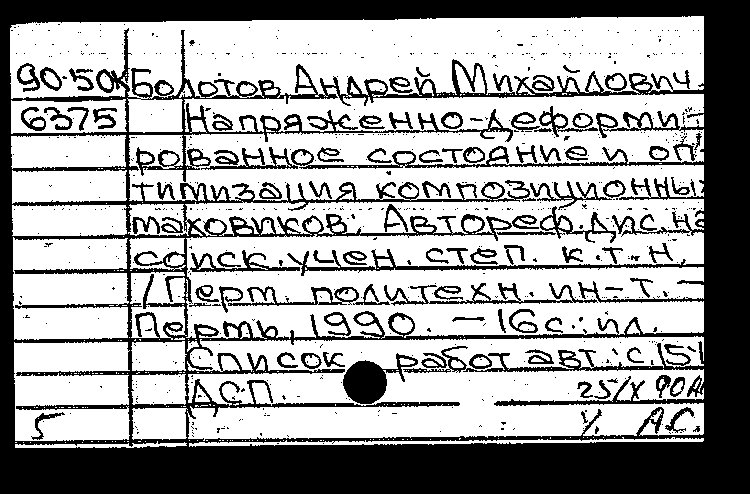 90-50К Болотов, Андрей Михайлович.
6375 Напряженно-деформи-
рованное состояние и оп-
тимизация композиционных
маховиков: Автореф. дис. на
соиск. учен. степ. к.т.н.
/ Перм. политехн. ин-т. —
Пермь, 1990. — 16 с.: ил.
Список работ авт.: с. 15
ДСП. 25/X 90
5 У. А.С.